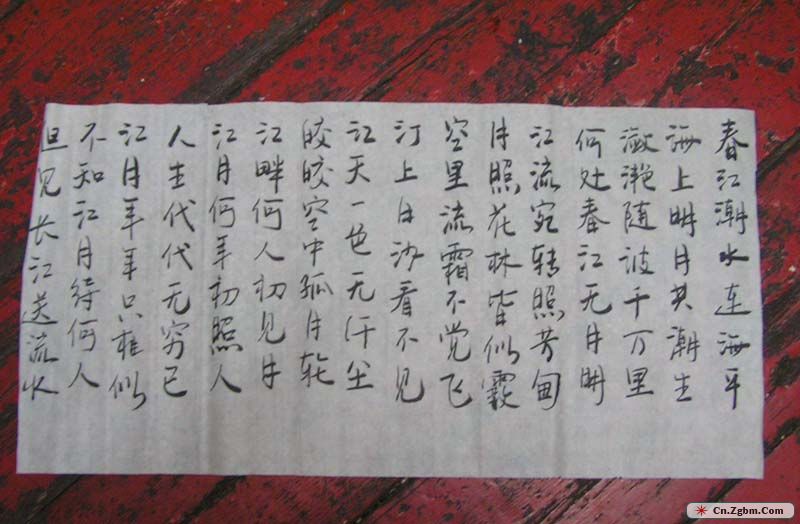 春江潮水连海平
海上明月共潮生
潋滟随波千万里
何处春江无月明
江流宛转照芳甸
月照花林皆似霰
空里流霜不觉飞
汀上白沙看不见
江天一色无纤尘
皎皎空中孤月轮
江畔何人初见月
江月何年初照人
人生代代无穷已
江月年年只相似
不知江月待何人
但见长江送流水
Cn.Zgbm.Com